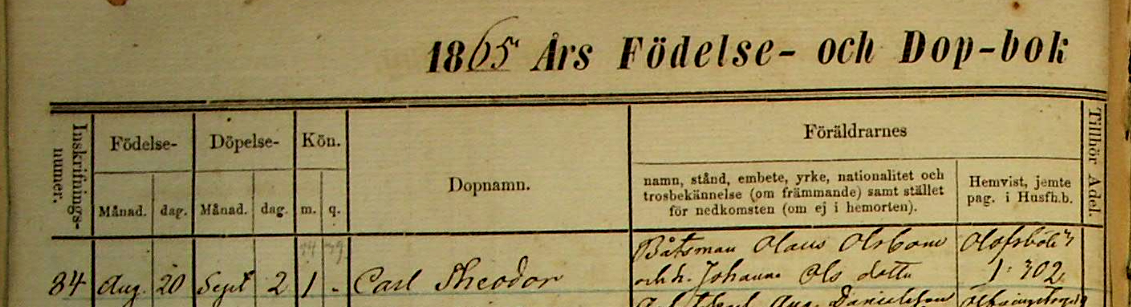 1865 Års Födelse- och Dop-bok
Inskrifnings-
numer.
Födelse-
Döpelse-
Kön.
Månad.
dag.
Månad.
dag.
m.
q.
Dopnamn.
Föräldrarnes
namn, stånd, embete, yrke, nationalitet och
trosbekännelse (om främmande) samt stället
för nedkomsten (om ej i hemorten).
Hemvist, jemte
pag. i Husfh.b.
Tillhör Adel.
84 Aug. 20 Sept 2 1 - Carl Theodor
Båtsman Olaus
Johanna Ols dotter
1: 302
Aug. Danielsson